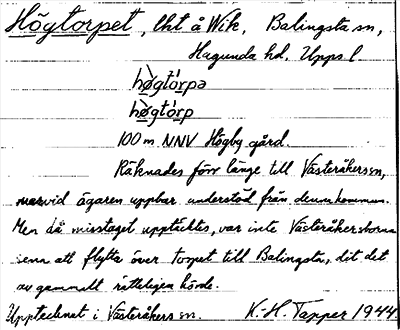 Högtorpet, lht å Wik, Balingsta sn,
Hagunda hd, Upps l.
högtórpa
högtórp
100 m NNV Högby gård.
Räknades förr länge till Västeråkers sn,
varvid ägaren uppbar understöd från denna kommun.
Men då misstaget upptäcktes, var inte Västeråkersborna
sena att flytta över torpet till Balingsta, dit det
av gammalt rätteligen hörde.
Upptecknat i Västeråkers sn. K.-H. Tapper 1944